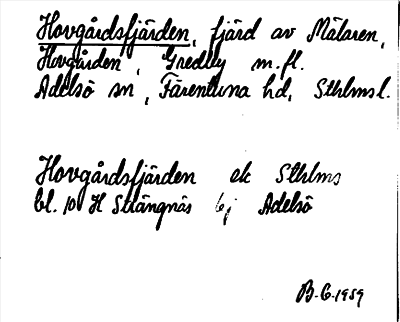 Hovgårdsfjärden, fjärd av Mälaren,
Hovgården, Gredby m.fl.
Adelsö sn, Färentuna hd, Sthlms l.
Hovgårdsfjärden ek Sthlms
bl. 10 H Strängnäs bj Adelsö
B. G. 1959